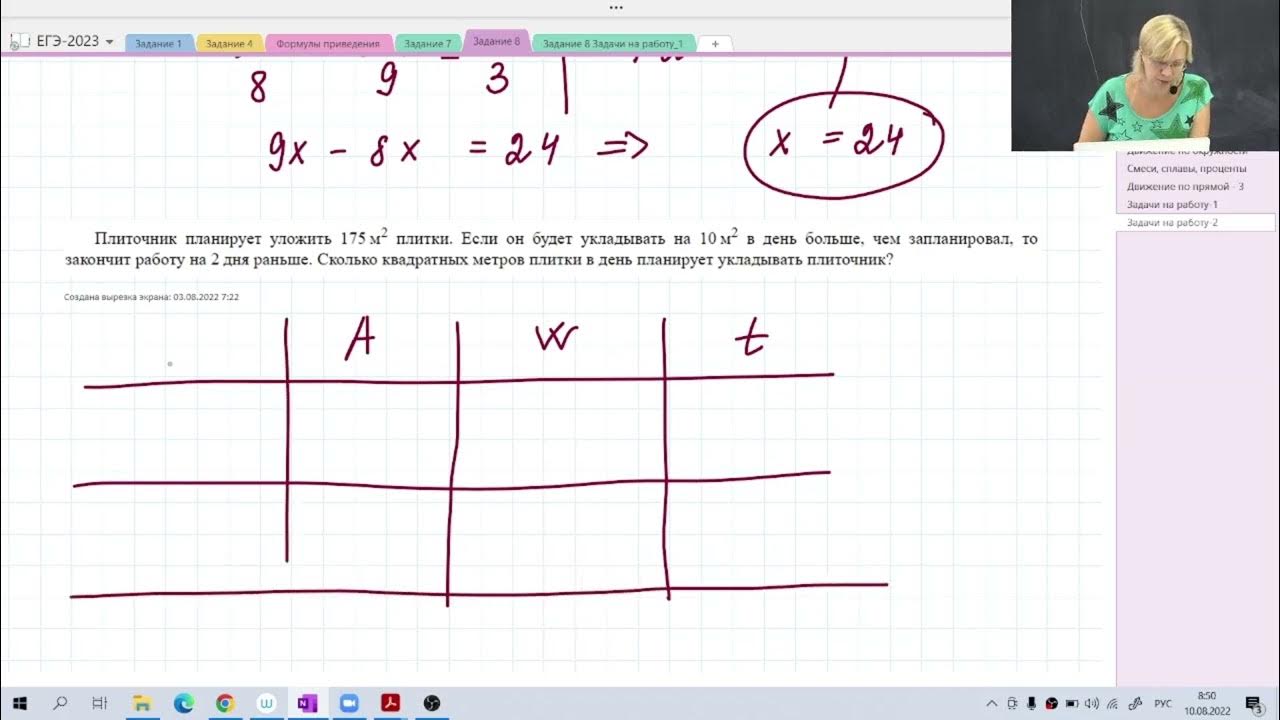 ...
ЕГЭ-2023
Задание 1
Задание 4
Формулы приведения
Задание 7
Задание 8
Задание 8 Задачи на работу_1
+
8 9 3
9x - 8x = 24 => x = 24
Движение по окружности
Смеси, сплавы, проценты
Движение по прямой - 3
Задачи на работу-1
Задачи на работу-2
Плиточник планирует уложить 175 м² плитки. Если он будет укладывать на 10 м² в день больше, чем запланировал, то
закончит работу на 2 дня раньше. Сколько квадратных метров плитки в день планирует укладывать плиточник?
Создана вырезка экрана: 03.08.2022 7:22
A W t
РУС
8:50
10.08.2022
3